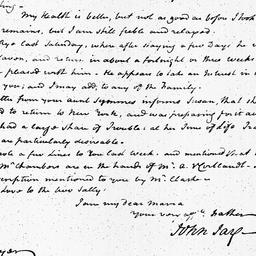 My Health is better, but not as good as before I took
remains, but I am still feeble and relaxed.
Rye last Saturday, where after staying a few Days he w
avon, and return in about a fortnight or three weeks
pleased with him. He appears to take an Interest in
you; and I may add, to any of the Family.
tter from your aunt Symmes informs Susan, that sh
d to return to New York, and was preparing for it
had a large Share of Trouble; at her Time of Life
are particularly desireable.
wrote a few Lines to you last week. and mentioned that
Mr Chambers are in the hands of Mr. a. VCortlandt.
scription mentioned to you by Mr. Clark—
Love to the two Sally.
I am my dear Maria
Your very afft. Father
John Jay